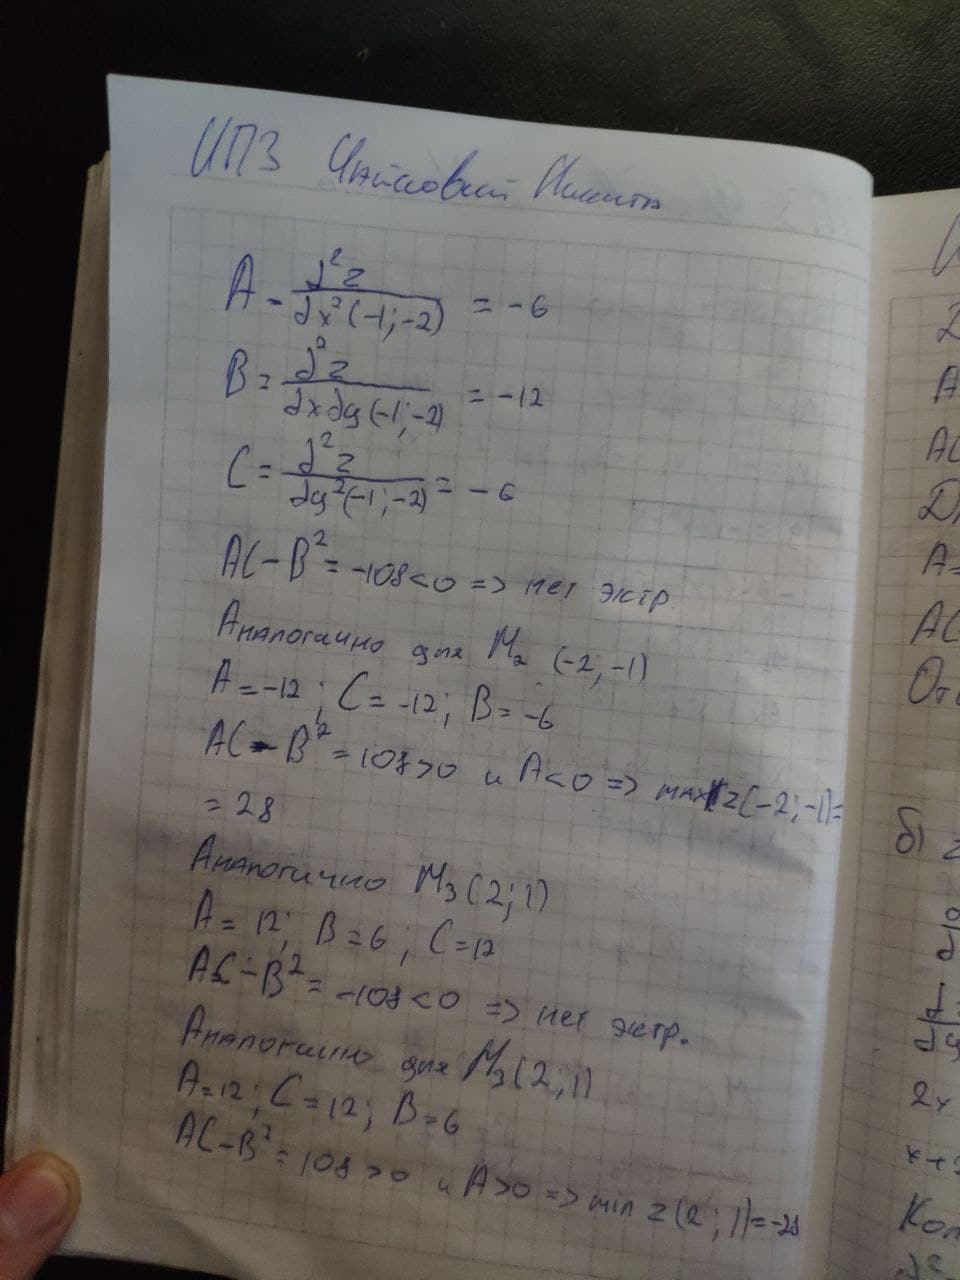 ИПЗ Чайковский Никита
A = ∂²z / ∂x²(-1;-2) = -6
B = ∂²z / ∂x∂y(-1;-2) = -12
C = ∂²z / ∂y²(-1;-2) = -6
AC - B² = -108 < 0 => нет экстр.
Аналогично для M₂ (-2;-1)
A = -12; C = -12; B = -6
AC - B² = 108 > 0 и A < 0 => max z(-2;-1) =
= 28
Аналогично M₃(2;1)
A = 12; B = 6; C = 12
AC - B² = -108 < 0 => нет экстр.
Аналогично для M₃(2;1)
A = 12; C = 12; B = 6
AC - B² = 108 > 0 и A > 0 => min z(2;1) = -28
A
AC
A =
AC
б) z
2x
Кол